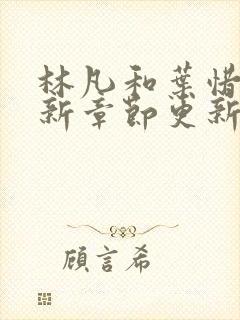 林凡和葉惜
新章節更新
顧言希